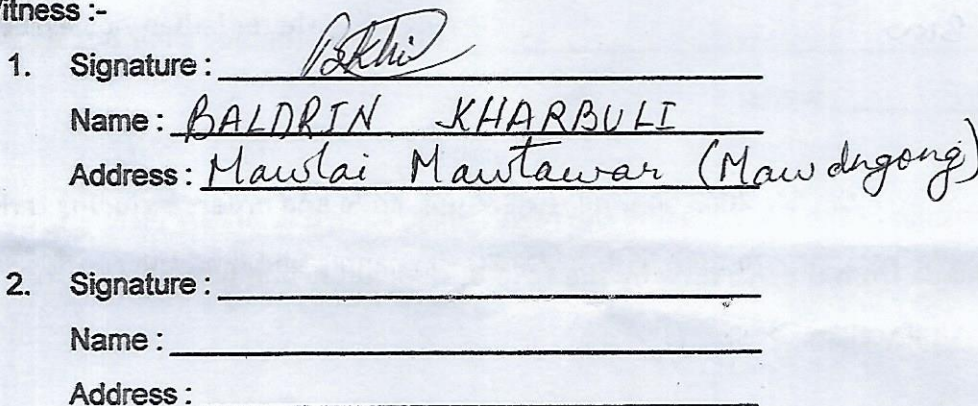 itness :-
1. Signature : BKhi
Name : BALDRIN KHARBULI
Address : Mawlai Mawtawar (Mawdngong)
2. Signature :
Name :
Address :